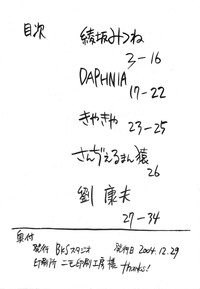 目次
綾坂みつね
3-16
DAPHNIA
17-22
きゃきゃ
23-25
さんぢぇるまん猿
26
劉 康夫
27-34
奥付
発行 BKSスタジオ 発行日 2004.12.29
印刷所 ニモ印刷工房様 thanks!